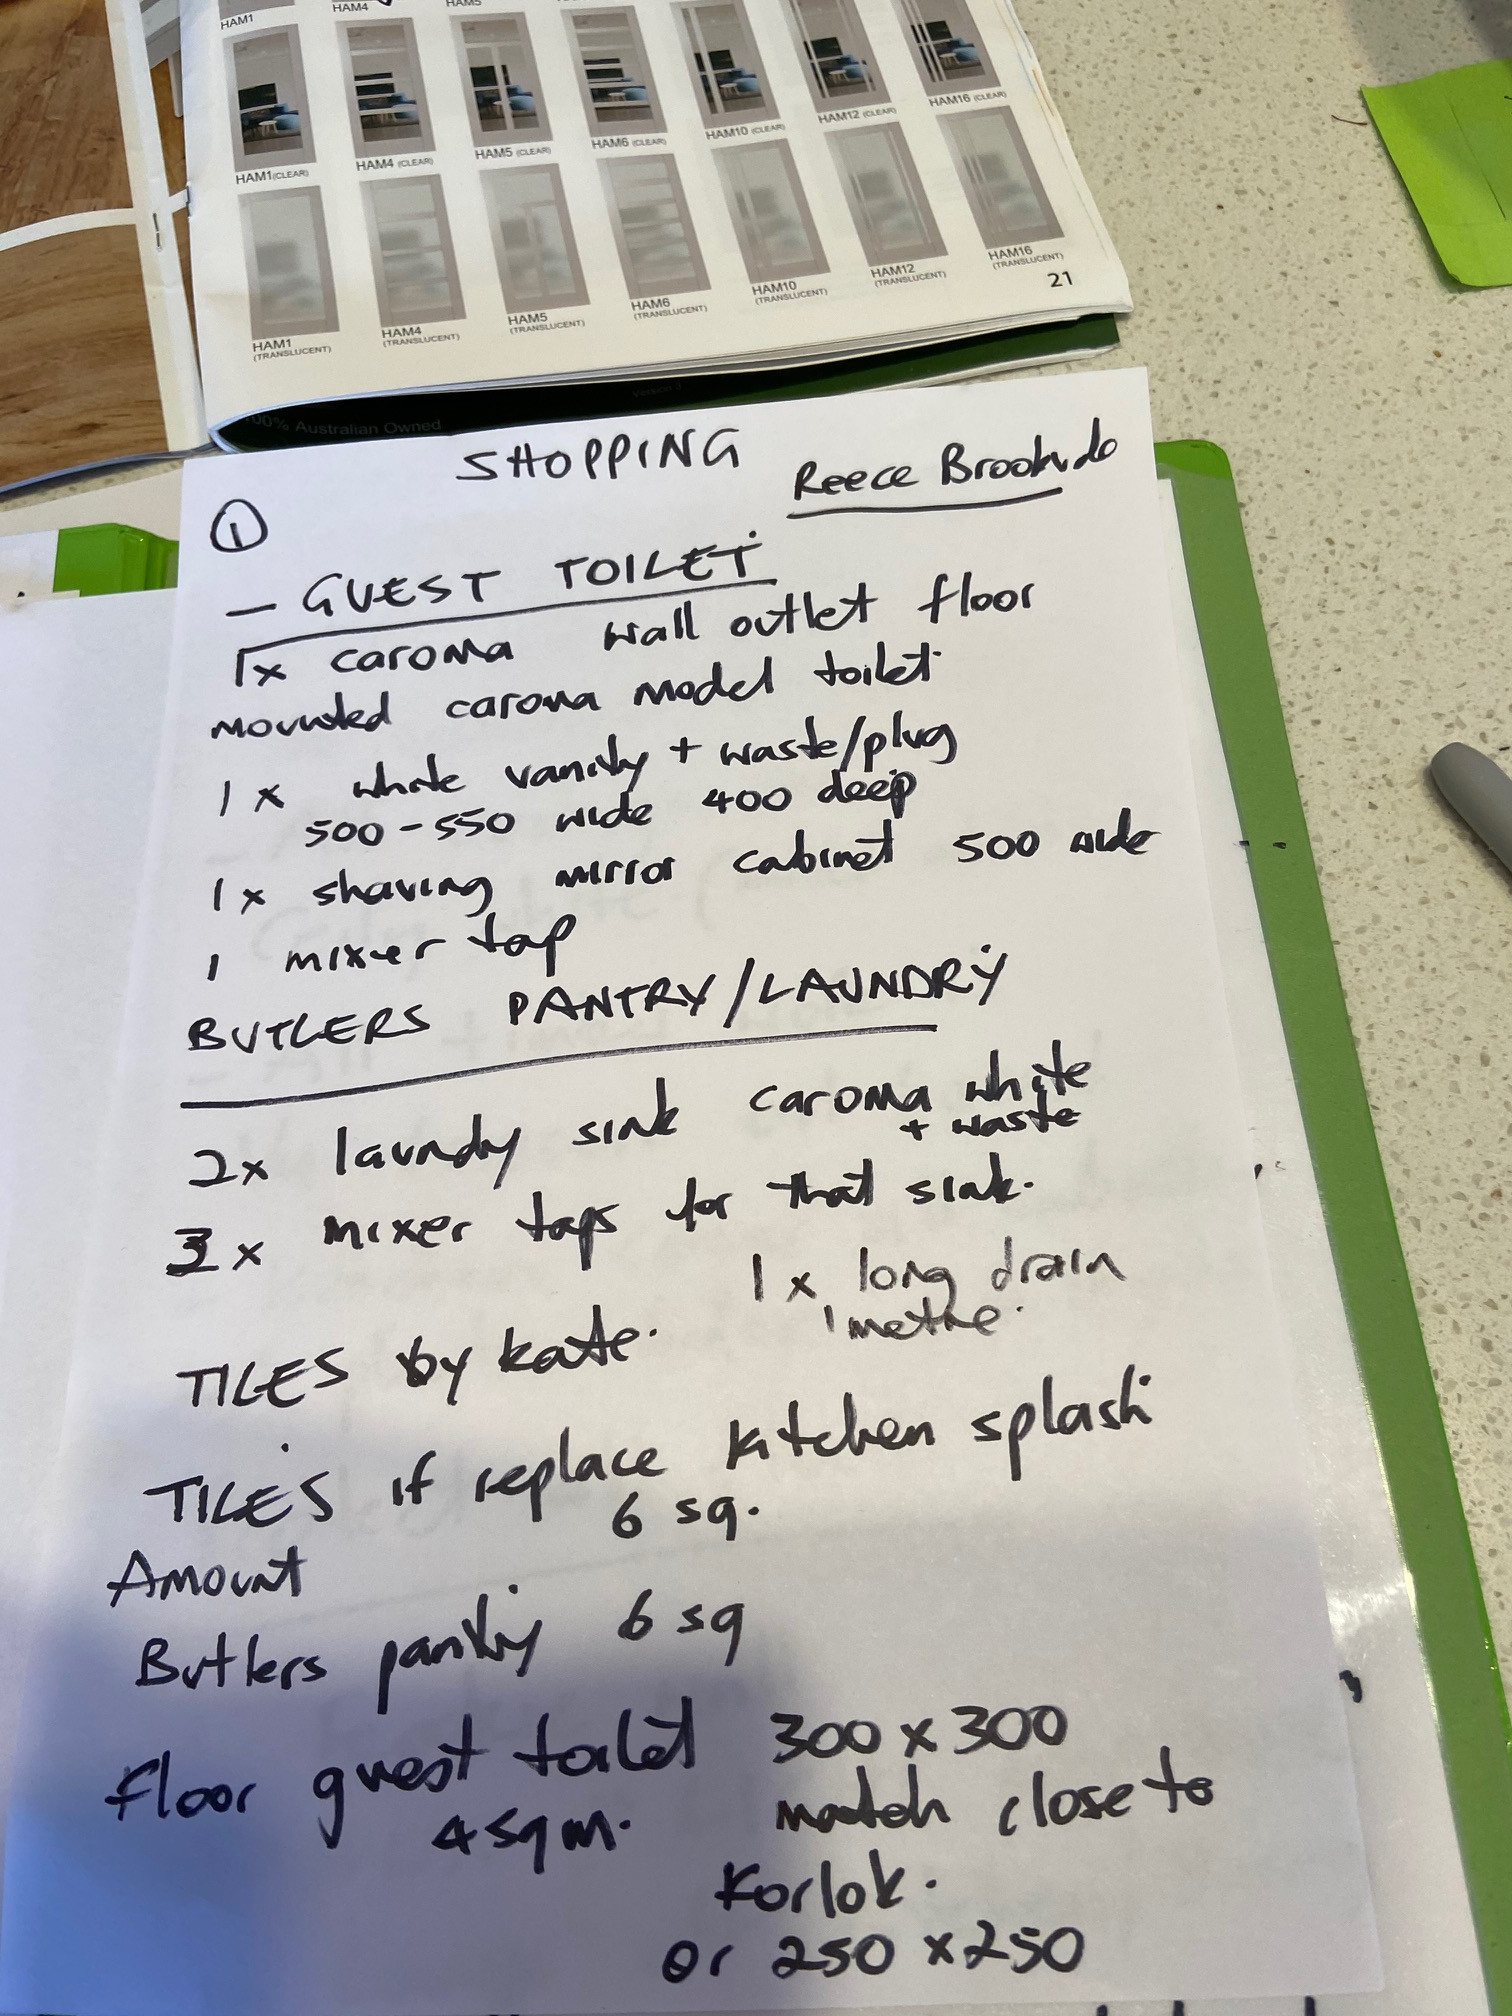 HAM1
HAM4
HAM5
HAM1(CLEAR)
HAM4 (CLEAR)
HAM5 (CLEAR)
HAM6 (CLEAR)
HAM10 (CLEAR)
HAM12 (CLEAR)
HAM16 (CLEAR)
HAM1
(TRANSLUCENT)
HAM4
(TRANSLUCENT)
HAM5
(TRANSLUCENT)
HAM6
(TRANSLUCENT)
HAM10
(TRANSLUCENT)
HAM12
(TRANSLUCENT)
HAM16
(TRANSLUCENT)
21
100% Australian Owned
SHOPPING
Reece
1
- GUEST TOILET
1x caroma wall outlet floor
mounted caroma model toilet
1 x white vanity + waste/plug
500-550 wide 400 deep
1 x shaving mirror cabinet 500 wide
1 mixer tap
BUTLERS PANTRY/LAUNDRY
2x laundy sink caroma white
+ waste
x mixer taps for that sink.
1 x long drain
1 metre.
TILES by kate.
TILES if replace kitchen splash
6 sq.
Amount
Butlers pantry 6 sq
Floor guest toilet 300 x 300
4 sqm. match close to
Korlok.
or 250 x 250